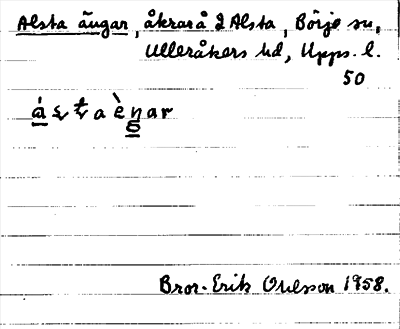 Alsta ängar, åkrar å 2 Alsta, Börje sn,
Ulleråkers hd, Upps. l.
50
Bror-Erik Ohlsson 1958.